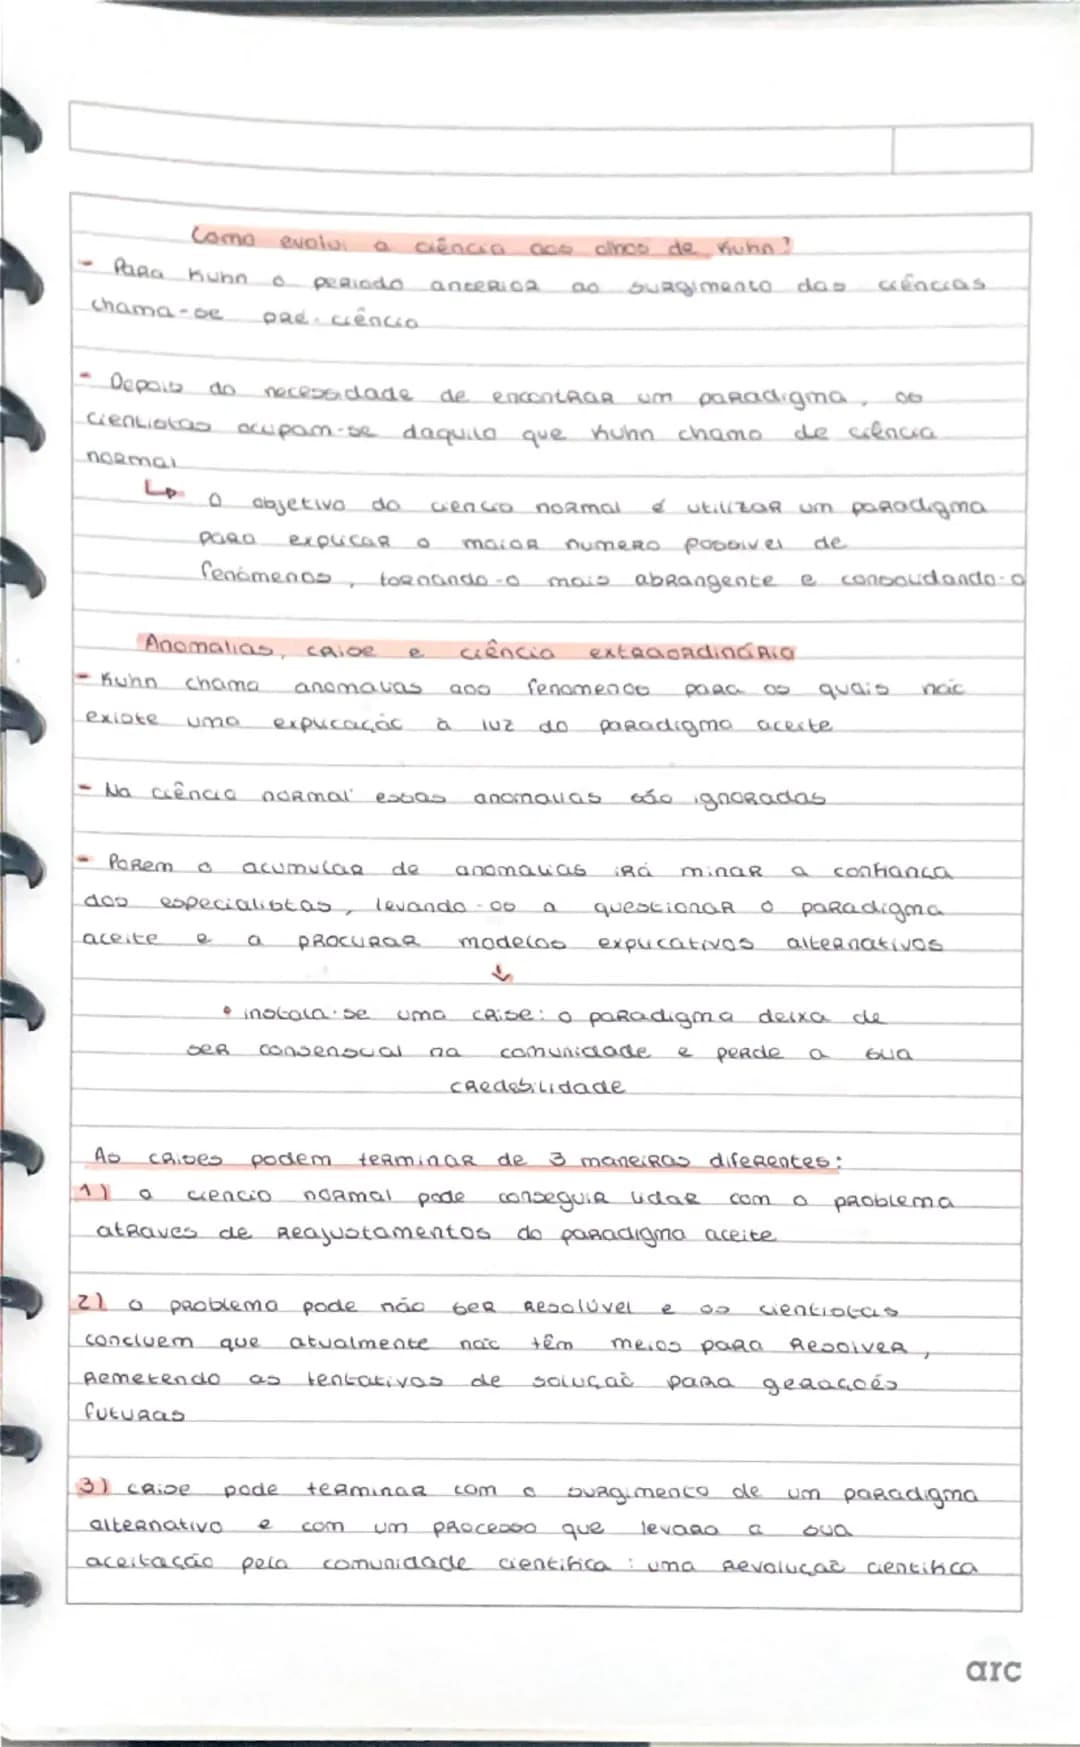 Como evolui a ciência aos olhos de Kuhn?
- Para Kuhn o periodo anterior ao surgimento das ciências
chama-se pré-ciência
- Depois da necessidade de encontrar um paradigma, os
cientistas ocupam-se daquilo que Kuhn chama de ciência
normal
↳ O objetivo da ciencia normal é utilizar um paradigma
para explicar o maior numero possivel de
fenómenos, tornando-o mais abrangente e consolidando-o
Anomalias, crise e ciência extraordinária
- Kuhn chama anomalias aos fenomenos para os quais não
existe uma explicação à luz do paradigma aceite
- Na ciência normal essas anomalias são ignoradas
- Porem o acumular de anomalias irá minar a confiança
dos especialistas, levando-os a questionar o paradigma
aceite e a procurar modelos explicativos alternativos
↓
• instala-se uma crise: o paradigma deixa de
ser consensual na comunidade e perde a sua
credebilidade
As crises podem terminar de 3 maneiras diferentes:
1) a ciencia normal pode conseguir lidar com o problema
atraves de reajustamentos do paradigma aceite
2) o problema pode não ser resolúvel e os cientistas
concluem que atualmente não têm meios para resolver,
remetendo as tentativas de solução para gerações
futuras
3) crise pode terminar com o surgimento de um paradigma
alternativo e com um processo que levara a sua
aceitação pela comunidade cientifica: uma revolução cientifica
arc